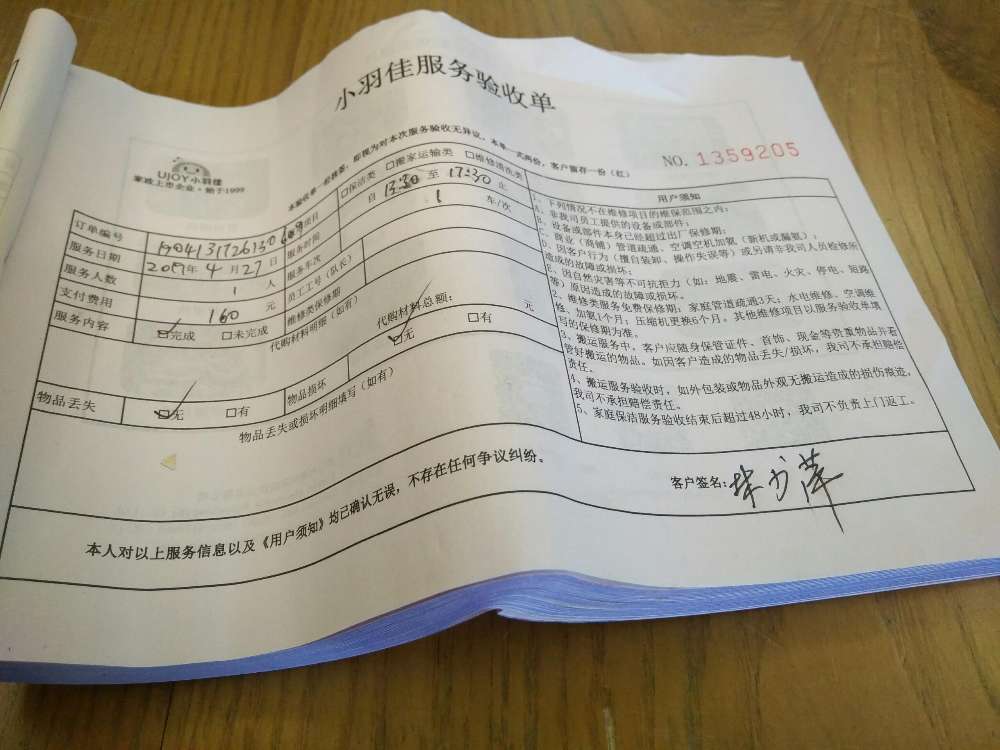 小羽佳服务验收单
UJOY小羽佳
家政上市企业·始于1999
本验收单一经签署,即视为对本次服务验收无异议。本单一式两份,客户留存一份(红)
NO. 1359205
订单编号 项目 □保洁类 □搬家运输类 □维修清洗类
服务日期 2019年4月27日 服务时间 自 13:30 至 17:30 止
服务人数 1 人 服务车次 1 车/次
支付费用 160 元 员工工号(队长)
服务内容 ☑完成 □未完成 维修类保修期
代购材料明细(如有) 代购材料总额: 元
物品丢失 ☑无 □有 物品损坏 ☑无 □有
物品丢失或损坏明细填写(如有)
用户须知
1、下列情况不在维修项目的维保范围之内:
A、非我司员工提供的设备或部件;
B、设备或部件本身已经超过出厂保修期;
C、商业(商铺)管道疏通、空调空机加氨(新机或漏氨);
D、因客户行为(擅自装卸、操作失误等)或另请非我司人员检修所
造成的故障或损坏;
E、因自然灾害等不可抗拒力(如:地震、雷电、火灾、停电、短路
等)原因造成的故障或损坏。
2、维修类服务免费保修期:家庭管道疏通3天;水电维修、空调维
修、加氨1个月;压缩机更换6个月。其他维修项目以服务验收单填
写的保修期为准。
3、搬运服务中,客户应随身保管证件、首饰、现金等贵重物品并看
管好搬运的物品。如因客户造成的物品丢失/损坏,我司不承担赔偿
责任。
4、搬运服务验收时,如外包装或物品外观无搬运造成的损伤痕迹,
我司不承担赔偿责任。
5、家庭保洁服务验收结束后超过48小时,我司不负责上门返工。
本人对以上服务信息以及《用户须知》均已确认无误,不存在任何争议纠纷。
客户签名: